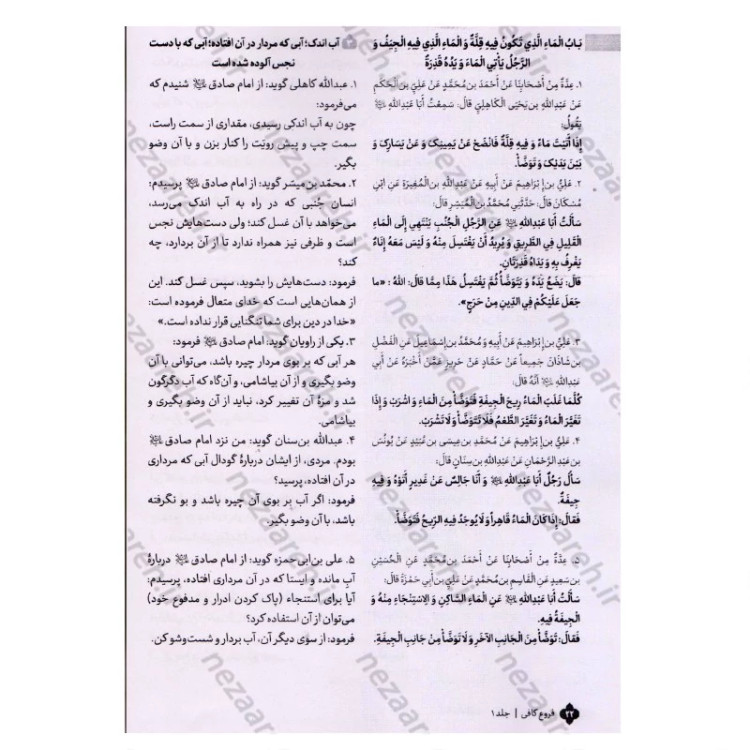 بَابُ الْمَاءِ الَّذِي تَكُونُ فِيهِ قِلَّةٌ وَ الْمَاءِ الَّذِي فِيهِ الْجِيَفُ وَ
الرَّجُلُ يَأْتِي الْمَاءَ وَ يَدُهُ قَذِرَةٌ
۱. عِدَّةٌ مِنْ أَصْحَابِنَا عَنْ أَحْمَدَ بن‌مُحَمَّدٍ عَنْ عَلِيِّ بن‌الْحَكَمِ
عَنْ عَبْدِاللّٰهِ بن‌يَحْيَى الْكَاهِلِيِّ قَالَ: سَمِعْتُ أَبَا عَبْدِاللّٰهِ
يَقُولُ:
إِذَا أَتَيْتَ مَاءً وَ فِيهِ قِلَّةٌ فَانْضَحْ عَنْ يَمِينِكَ وَ عَنْ يَسَارِكَ وَ
بَيْنَ يَدَيْكَ وَ تَوَضَّأْ.
۲. عَلِيُّ بن‌إِبْرَاهِيمَ عَنْ أَبِيهِ عَنْ عَبْدِاللّٰهِ بن‌الْمُغِيرَةِ عَنِ ابْنِ
مُسْكَانَ قَالَ: حَدَّثَنِي مُحَمَّدُ بن‌الْمُيَسِّرِ قَالَ:
سَأَلْتُ أَبَا عَبْدِاللّٰهِ عَنِ الرَّجُلِ الْجُنُبِ يَنْتَهِي إِلَى الْمَاءِ
الْقَلِيلِ فِي الطَّرِيقِ وَ يُرِيدُ أَنْ يَغْتَسِلَ مِنْهُ وَ لَيْسَ مَعَهُ إِنَاءٌ
يَغْرِفُ بِهِ وَ يَدَاهُ قَذِرَتَانِ.
قَالَ: يَضَعُ يَدَهُ وَ يَتَوَضَّأُ ثُمَّ يَغْتَسِلُ هَذَا مِمَّا قَالَ: اللّٰهُ : «مَا
جَعَلَ عَلَيْكُمْ فِي الدِّينِ مِنْ حَرَجٍ».
۳. عَلِيُّ بن‌إِبْرَاهِيمَ عَنْ أَبِيهِ وَ مُحَمَّدُ بن‌إِسْمَاعِيلَ عَنِ الْفَضْلِ
بن‌شَاذَانَ جَمِيعاً عَنْ حَمَّادٍ عَنْ حَرِيزٍ عَمَّنْ أَخْبَرَهُ عَنْ أَبِي
عَبْدِاللّٰهِ أَنَّهُ قَالَ:
كُلَّمَا غَلَبَ الْمَاءُ رِيحَ الْجِيفَةِ فَتَوَضَّأْ مِنَ الْمَاءِ وَ اشْرَبْ وَ إِذَا
تَغَيَّرَ الْمَاءُ وَ تَغَيَّرَ الطَّعْمُ فَلَا تَتَوَضَّأْ وَ لَا تَشْرَبْ.
۴. عَلِيُّ بن‌إِبْرَاهِيمَ عَنْ مُحَمَّدِ بن‌عِيسَى بن‌عُبَيْدٍ عَنْ يُونُسَ
بن‌عَبْدِالرَّحْمَانِ عَنْ عَبْدِاللّٰهِ بن‌سِنَانٍ قَالَ:
سَأَلَ رَجُلٌ أَبَا عَبْدِاللّٰهِ وَ أَنَا جَالِسٌ عَنْ غَدِيرٍ أَتَوْهُ وَ فِيهِ
جِيفَةٌ.
فَقَالَ: إِذَا كَانَ الْمَاءُ قَاهِراً وَ لَا يُوجَدُ فِيهِ الرِّيحُ فَتَوَضَّأْ.
۵. عِدَّةٌ مِنْ أَصْحَابِنَا عَنْ أَحْمَدَ بن‌مُحَمَّدٍ عَنِ الْحُسَيْنِ
بن‌سَعِيدٍ عَنِ الْقَاسِمِ بن‌مُحَمَّدٍ عَنْ عَلِيِّ بن‌أَبِي حَمْزَةَ قَالَ:
سَأَلْتُ أَبَا عَبْدِاللّٰهِ عَنِ الْمَاءِ السَّاكِنِ وَ الِاسْتِنْجَاءِ مِنْهُ وَ
الْجِيفَةُ فِيهِ.
فَقَالَ: تَوَضَّأْ مِنَ الْجَانِبِ الْآخَرِ وَ لَا تَوَضَّأْ مِنْ جَانِبِ الْجِيفَةِ.
آب اندک؛ آبی که مردار در آن افتاده؛ آبی که با دست
نجس آلوده شده است
۱. عبدالله کاهلی گوید: از امام صادق شنیدم که
می‌فرمود:
چون به آب اندکی رسیدی، مقداری از سمت راست،
سمت چپ و پیش رویَت را کنار بزن و با آن وضو
بگیر.
۲. محمّد بن‌میسّر گوید: از امام صادق پرسیدم:
انسان جُنبی که در راه به آب اندک می‌رسد،
می‌خواهد با آن غسل کند؛ ولی دست‌هایش نجس
است و ظرفی نیز همراه ندارد تا از آن بردارد، چه
کند؟
فرمود: دست‌هایش را بشوید، سپس غسل کند. این
از همان‌هایی است که خدای متعال فرموده است:
«خدا در دین برای شما تنگنایی قرار نداده است.»
۳. یکی از راویان گوید: امام صادق فرمود:
هر آبی که بر بوی مردار چیره باشد، می‌توانی با آن
وضو بگیری و از آن بیاشامی، و آن‌گاه که آب دگرگون
شد و مزهٔ آن تغییر کرد، نباید از آن وضو بگیری و
بیاشامی.
۴. عبدالله بن‌سنان گوید: من نزد امام صادق
بودم. مردی، از ایشان دربارهٔ گودال آبی که مرداری
در آن افتاده، پرسید؟
فرمود: اگر آب بر بوی آن چیره باشد و بو نگرفته
باشد، با آن وضو بگیر.
۵. علی بن‌ابی‌حمزه گوید: از امام صادق دربارهٔ
آبِ مانده و ایستا که در آن مرداری افتاده، پرسیدم:
آیا برای استنجاء (پاک کردن ادرار و مدفوع خود)
می‌توان از آن استفاده کرد؟
فرمود: از سوی دیگر آن، آب بردار و شست‌وشو کن.
۲۲ فروع کافی | جلد ۱
nezaareh.ir